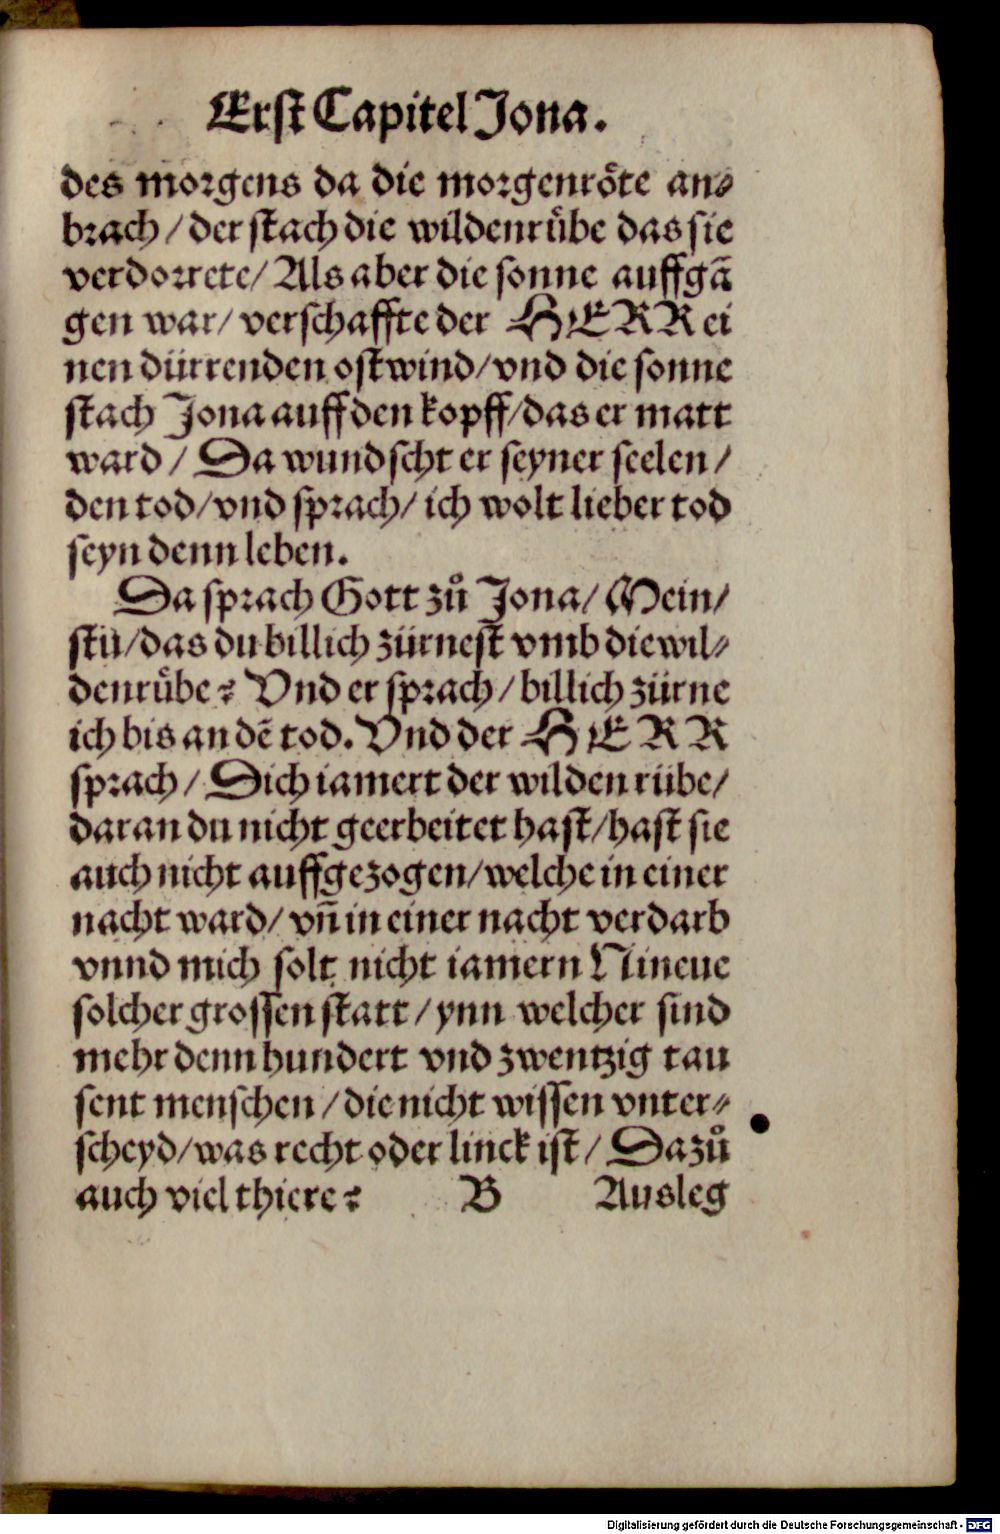 Erst Capitel Jona.
des morgens da die morgenroͤte an⸗
brach / der stach die wildenruͤbe das sie
verdorrete/ Als aber die sonne auffgã
gen war/ verschaffte der HERR ei
nen dürrenden ostwind/vnd die sonne
stach Jona auff den kopff/das er matt
ward / Da wundscht er seyner seelen /
den tod/vnd sprach/ ich wolt lieber tod
seyn denn leben.
Da sprach Gott zů Jona/ Mein/
stu/das du billich zürnest vmb die wil⸗
denruͤbe? Vnd er sprach / billich zürne
ich bis an dẽ tod. Vnd der HERR
sprach / Dich iamert der wilden rübe/
daran du nicht geerbeitet hast/hast sie
auch nicht auffgezogen/welche in einer
nacht ward/ vñ in einer nacht verdarb
vnnd mich solt nicht iamern Nineue
solcher grossen statt / ynn welcher sind
mehr denn hundert vnd zwentzig tau
sent menschen / die nicht wissen vnter⸗
scheyd/was recht oder linck ist / Dazů
auch viel thiere? B Ausleg
Digitalisierung gefördert durch die Deutsche Forschungsgemeinschaft - DFG